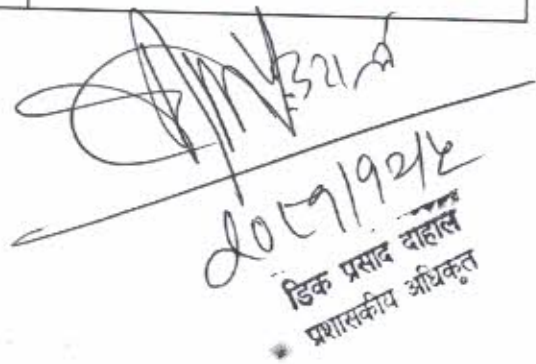 २०८१/१२/५
डिक प्रसाद दाहाल
प्रशासकीय अधिकृत